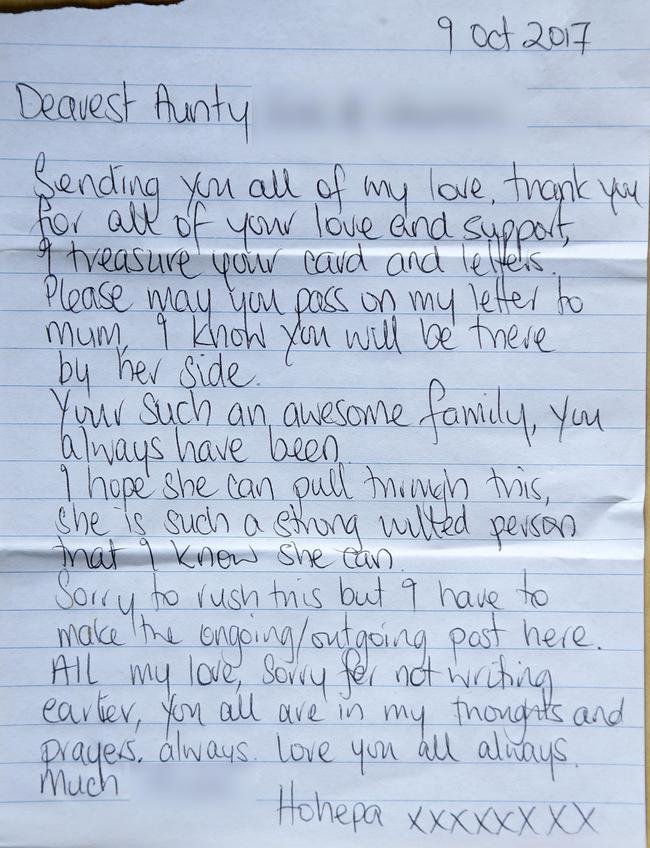 9 Oct 2017
Dearest Aunty
Sending you all of my love, thank you
for all of your love and support,
I treasure your card and letters.
Please may you pass on my letter to
mum, I know you will be there
by her side.
Your such an awesome family, you
always have been
I hope she can pull through this,
she is such a strong willed person
that I know she can.
Sorry to rush this but I have to
make the ongoing/outgoing post here.
All my love, Sorry for not writing
earlier, you all are in my thoughts and
prayers. always. love you all always.
Much
Hohepa xxxxxxxx